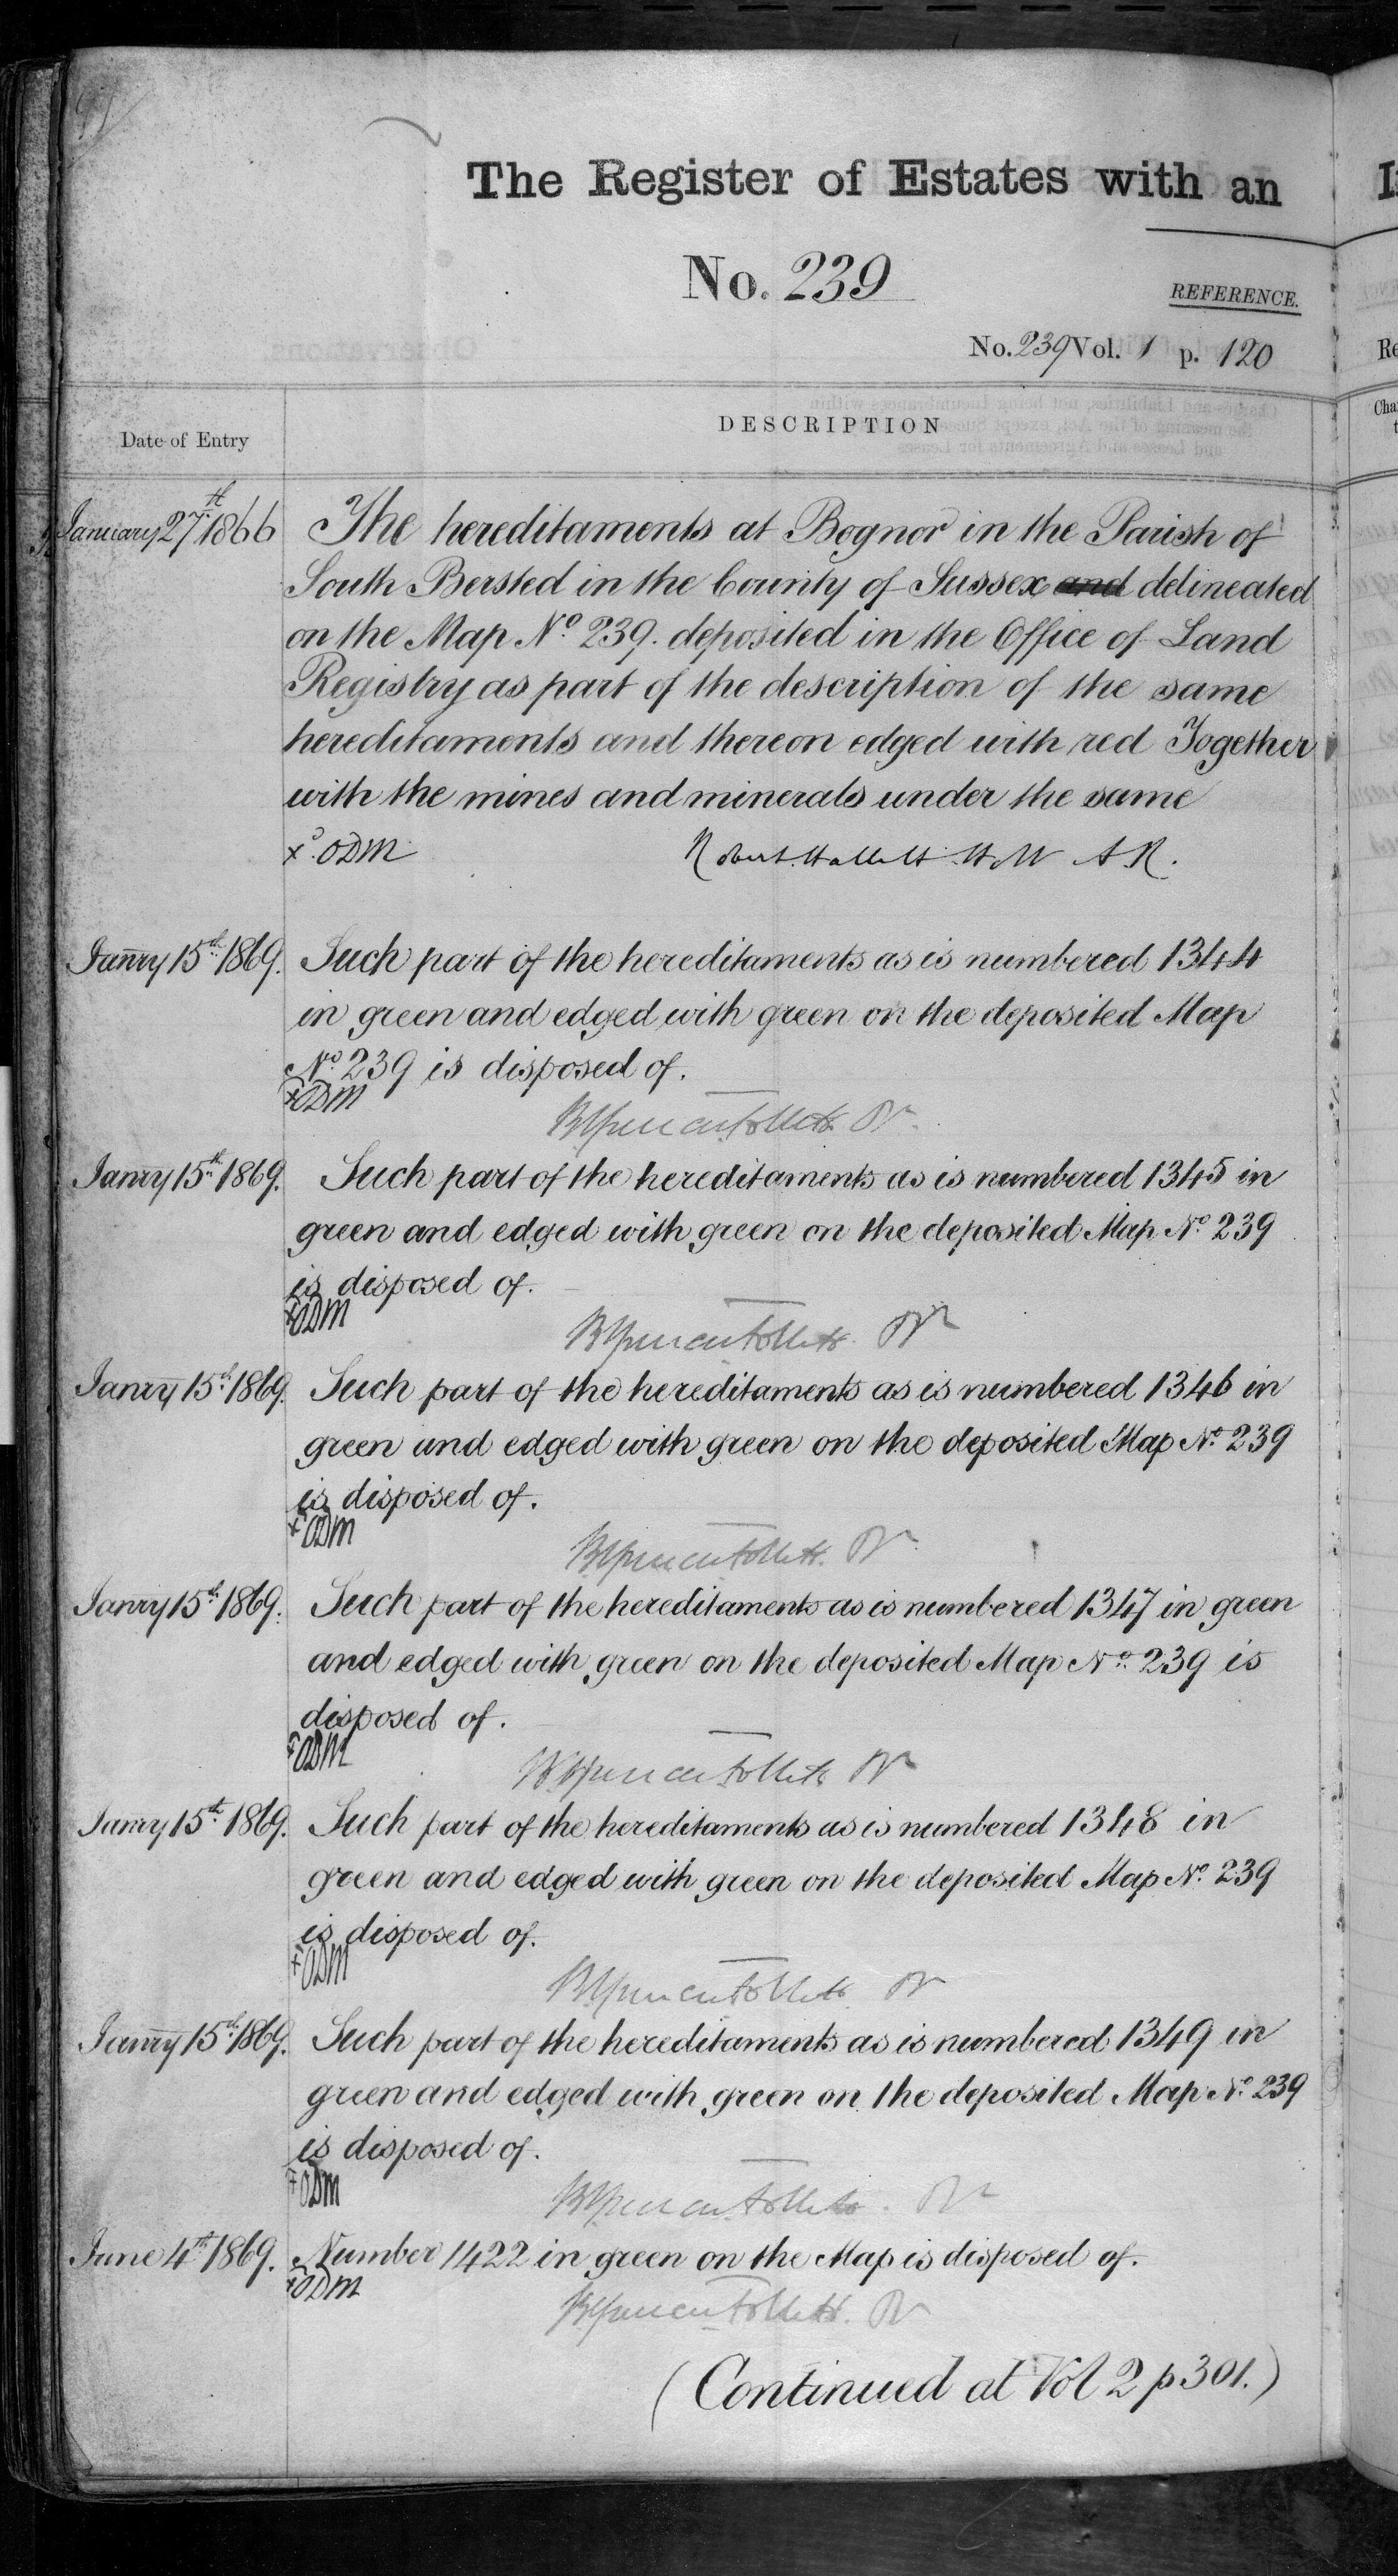 The Register of Estates with an
No. 239
REFERENCE.
No. 239 Vol. 1 p. 120
Date of Entry
DESCRIPTION
January 27th 1866 The hereditaments at Bognor in the Parish of
South Bersted in the County of Sussex and delineated
on the Map No 239. deposited in the Office of Land
Registry as part of the description of the same
hereditaments and thereon edged with red Together
with the mines and minerals under the same
ODM
Robert Hallett
Janry 15th 1869. Such part of the hereditaments as is numbered 1344
in green and edged with green on the deposited Map
No 239 is disposed of.
ODM
Janry 15th 1869. Such part of the hereditaments as is numbered 1345 in
green and edged with green on the deposited Map No 239
is disposed of.
ODM
Janry 15th 1869. Such part of the hereditaments as is numbered 1346 in
green and edged with green on the deposited Map No 239
is disposed of.
ODM
Janry 15th 1869. Such part of the hereditaments as is numbered 1347 in green
and edged with green on the deposited Map No 239 is
disposed of.
ODM
Janry 15th 1869. Such part of the hereditaments as is numbered 1348 in
green and edged with green on the deposited Map No 239
is disposed of.
ODM
Janry 15th 1869. Such part of the hereditaments as is numbered 1349 in
green and edged with green on the deposited Map No 239
is disposed of.
ODM
June 4th 1869. Number 1422 in green on the Map is disposed of.
ODM
(Continued at Vol 2 p 301.)